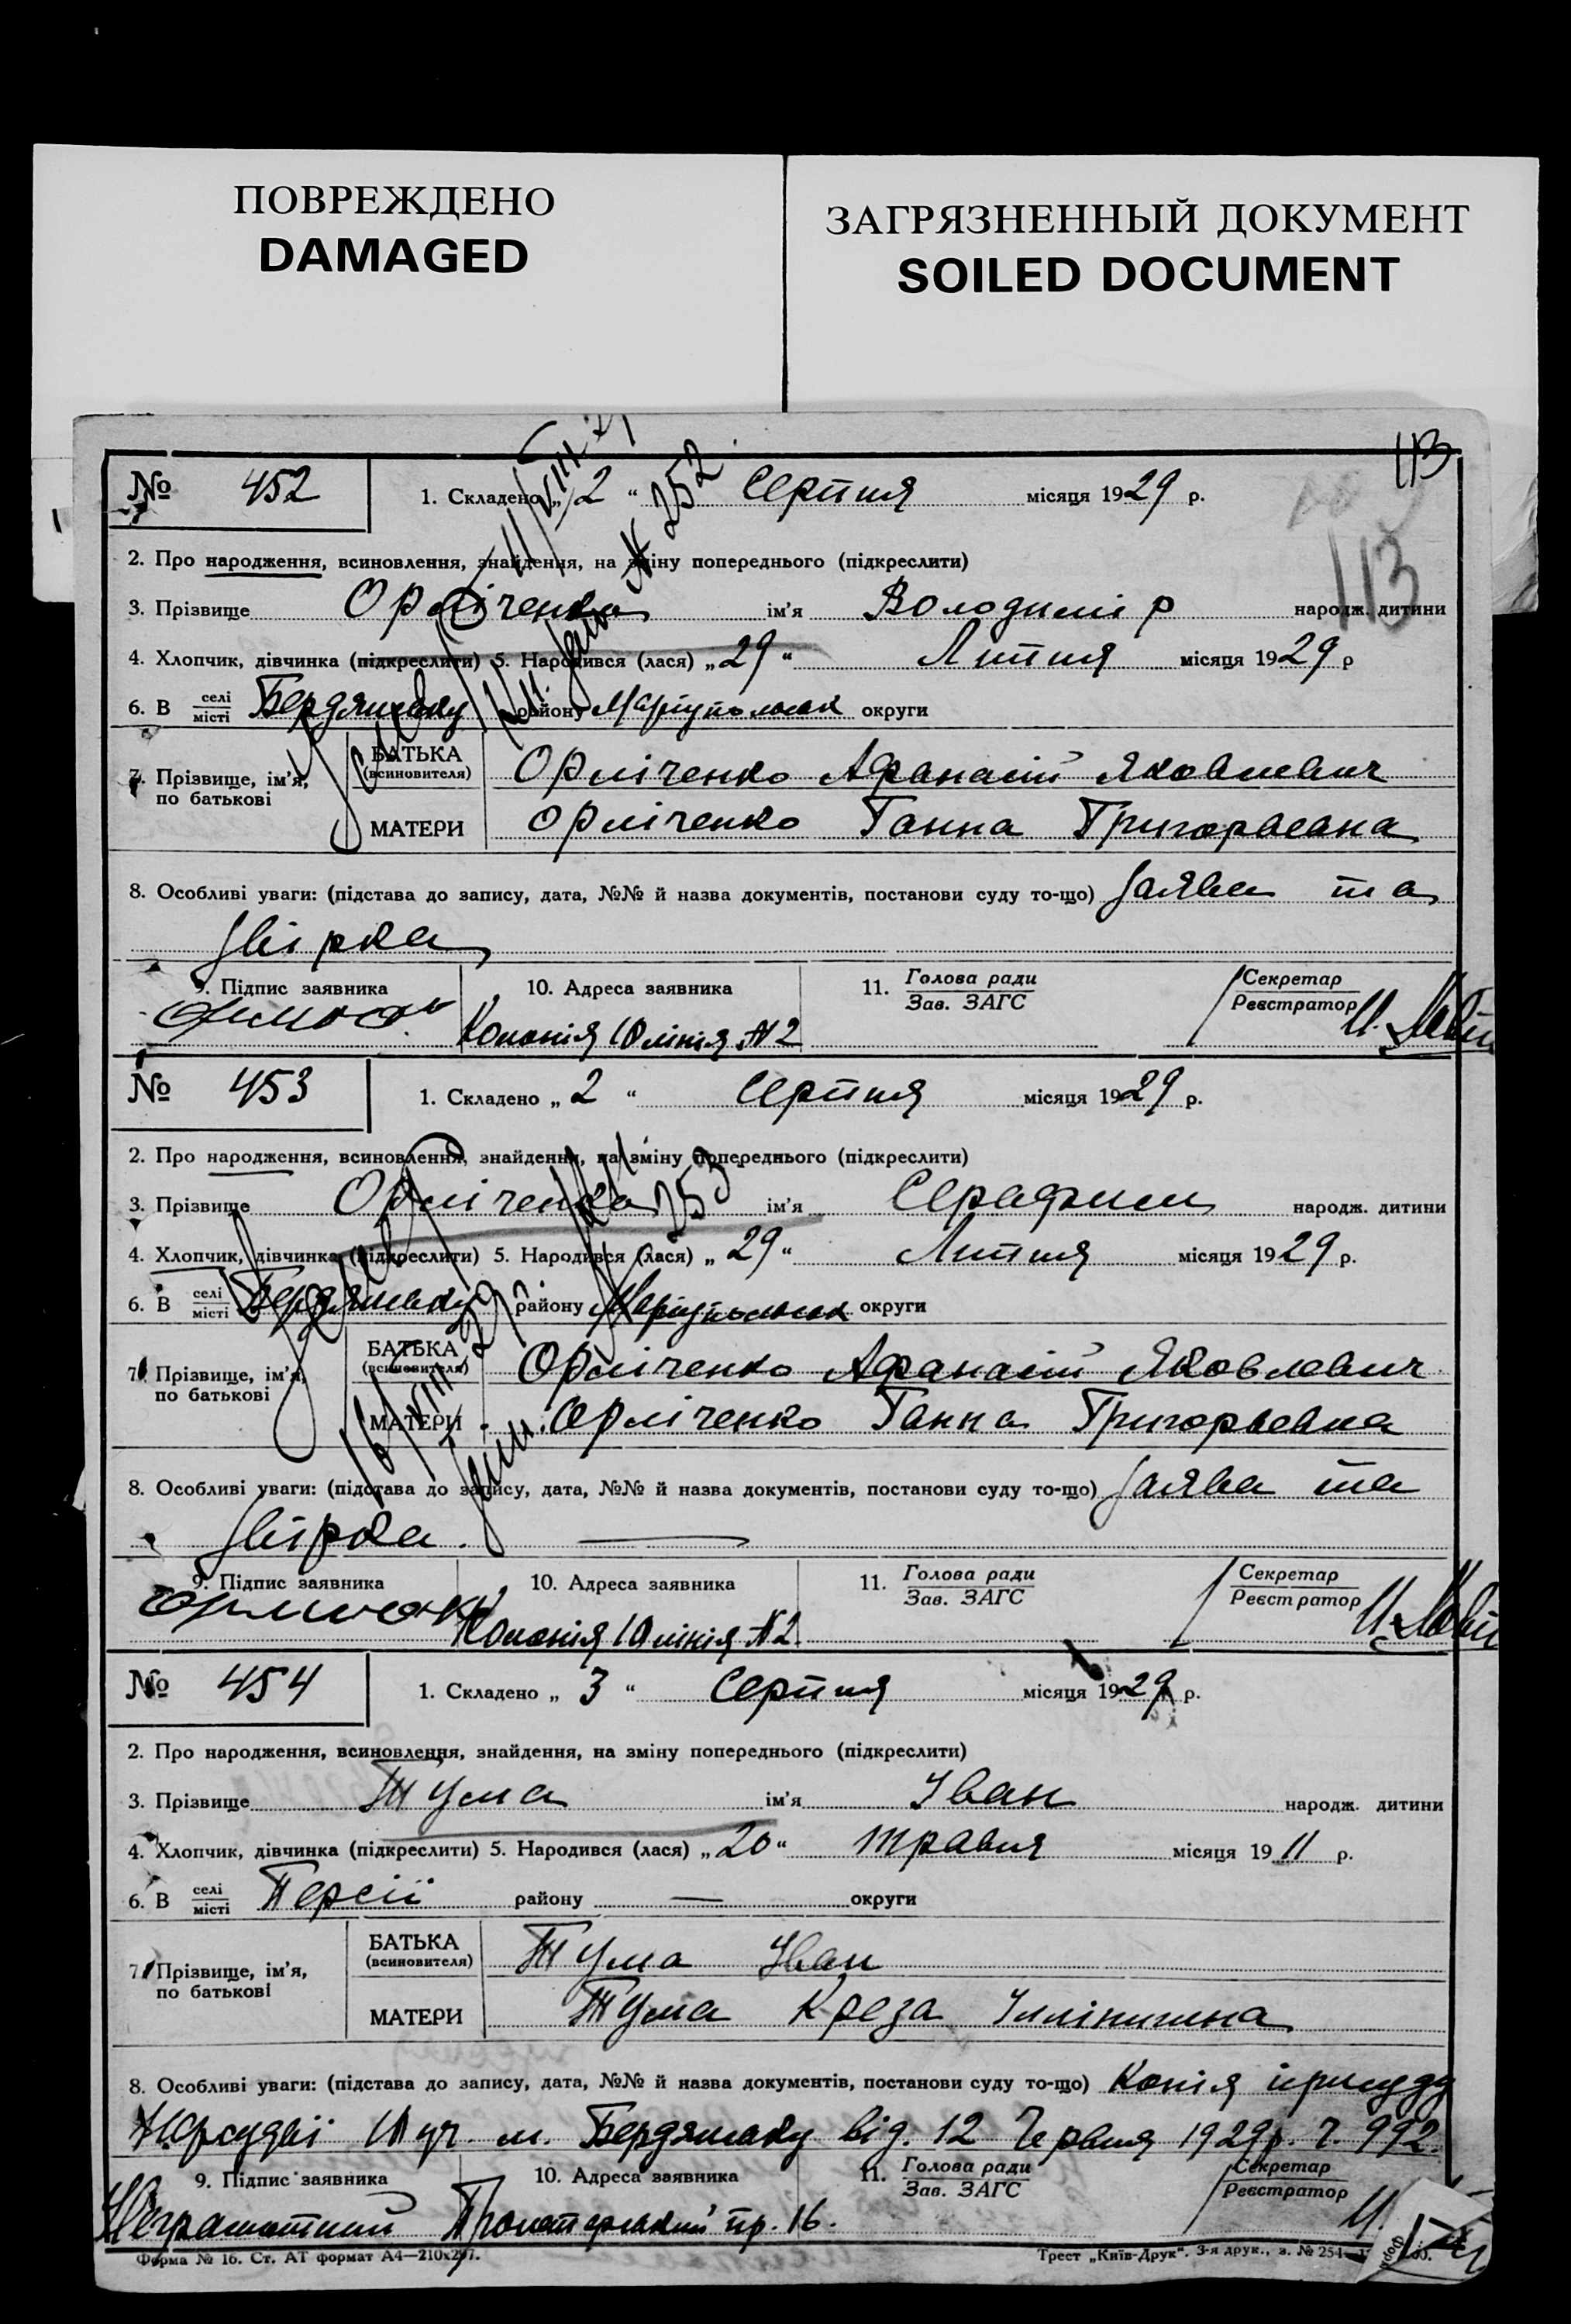 ПОВРЕЖДЕНО
DAMAGED
ЗАГРЯЗНЕННЫЙ ДОКУМЕНТ
SOILED DOCUMENT
113
113
№ 452 1. Складено „2“ Серпня місяця 1929 р.
№ 252
2. Про народження, всиновлення, знайдення, на зміну попереднього (підкреслити)
3. Прізвище Орліченко ім'я Володимір народж. дитини
4. Хлопчик, дівчинка (підкреслити) 5. Народився (лася) „29“ Липня місяця 1929 р
6. В селі місті Бердянську району Маріупольськ округи
7. Прізвище, ім'я, по батькові БАТЬКА (всиновителя) Орліченко Афанасій Яковлевич
МАТЕРИ Орліченко Ганна Григорьевна
8. Особливі уваги: (підстава до запису, дата, №№ й назва документів, постанови суду то-що) Заява та
Звірка
9. Підпис заявника 10. Адреса заявника 11. Голова ради Зав. ЗАГС Секретар Реєстратор
Колонія 10 лінія №2
№ 453 1. Складено „2“ Серпня місяця 1929 р.
2. Про народження, всиновлення, знайдення, на зміну попереднього (підкреслити)
253
3. Прізвище Орліченко ім'я Серафим народж. дитини
4. Хлопчик, дівчинка (підкреслити) 5. Народився (лася) „29“ Липня місяця 1929 р.
6. В селі місті Бердянську району Маріупольськ округи
7. Прізвище, ім'я, по батькові БАТЬКА (всиновителя) Орліченко Афанасій Яковлевич
МАТЕРИ Орліченко Ганна Григорьевна
8. Особливі уваги: (підстава до запису, дата, №№ й назва документів, постанови суду то-що) Заява та
Звірка.
9. Підпис заявника 10. Адреса заявника 11. Голова ради Зав. ЗАГС Секретар Реєстратор
Колонія 10 лінія №2
№ 454 1. Складено „3“ Серпня місяця 1929 р.
2. Про народження, всиновлення, знайдення, на зміну попереднього (підкреслити)
3. Прізвище Тума ім'я Іван народж. дитини
4. Хлопчик, дівчинка (підкреслити) 5. Народився (лася) „20“ травня місяця 1911 р.
6. В селі місті Персії району — округи
7. Прізвище, ім'я, по батькові БАТЬКА (всиновителя) Тума Іван
МАТЕРИ Тума Креза
8. Особливі уваги: (підстава до запису, дата, №№ й назва документів, постанови суду то-що) Копія присуду
Нарсудві уч. м. Бердянську від. 12 Червня 1929 р. ч. 992.
9. Підпис заявника 10. Адреса заявника 11. Голова ради Зав. ЗАГС Секретар Реєстратор
Неграмотний Пролетарський пр. 16.
Форма № 16. Ст. АТ формат А4—210х297. Трест „Київ-Друк“. 3-я друк., з. № 254